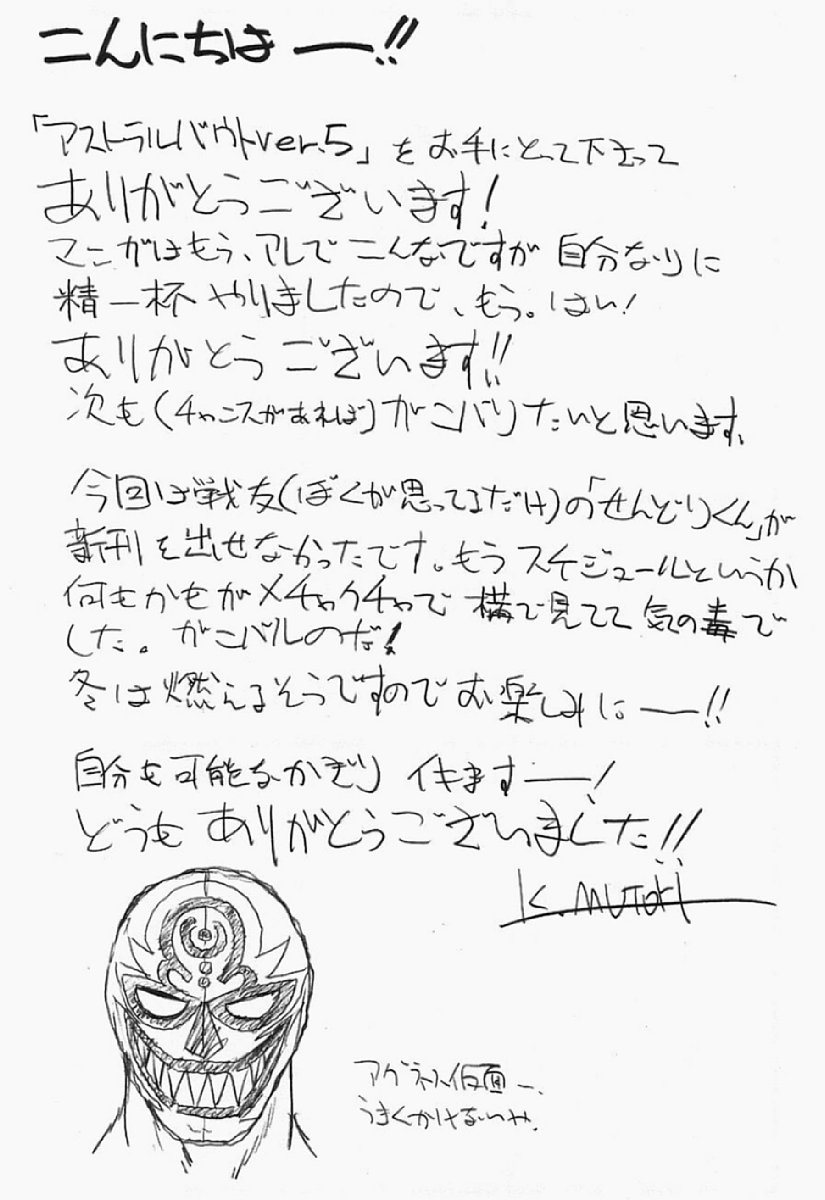 こんにちはー!!
「アストラルバウトver.5」をお手にとって下さって
ありがとうございます!
マンガはもう、アレでこんなですが自分なりに
精一杯やりましたので、もう。はい!
ありがとうございます!!
次も(チャンスがあれば)がんバリたいと思います。
今回は戦友(ぼくが思ってるだけ)の「せんどりくん」が
新刊を出せなかったです。もうスケジュールというか
何もかもがメチャクチャで横で見てて気の毒で
した。がんバルのだ!
冬は燃えるそうですのでお楽しみにー!!
自分も可能なかぎりイキますー!
どうもありがとうございました!!
K.MUTOH
アグネス仮面ー。
うまくかけないや。